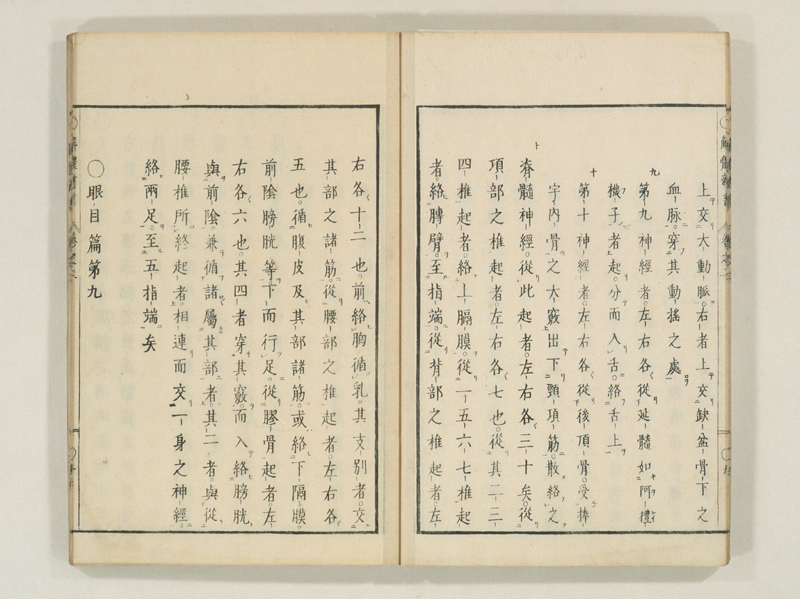 上交大動脈右者上交缺盆骨下之
血脉穿其動搖之處
九
第九神經者左右各從延髓如阿禮
機子者起分而入舌絡舌上
十
第十神經者左右各從後頂骨受捧
宇內骨之大竅出下顎項筋散絡之
ト
脊髓神經從此起者左右各三十矣從
項部之椎起者左右各七也從其二三
四椎起者絡上膈膜從一五六七椎起
者絡膊臂至指端從背部之椎起者左
右各十二也前絡胸循乳其支別者交
其部之諸筋從腰部之椎起者左右各
五也循腹皮及其部諸筋或絡下隔膜
前陰膀胱等下而行足從膠骨起者左
右各六也其四者穿其竅而入絡膀胱
與前陰兼循諸屬其部者其二者與從
腰椎所終起者相連而交一身之神經
絡兩足至五指端矣
○眼目篇第九